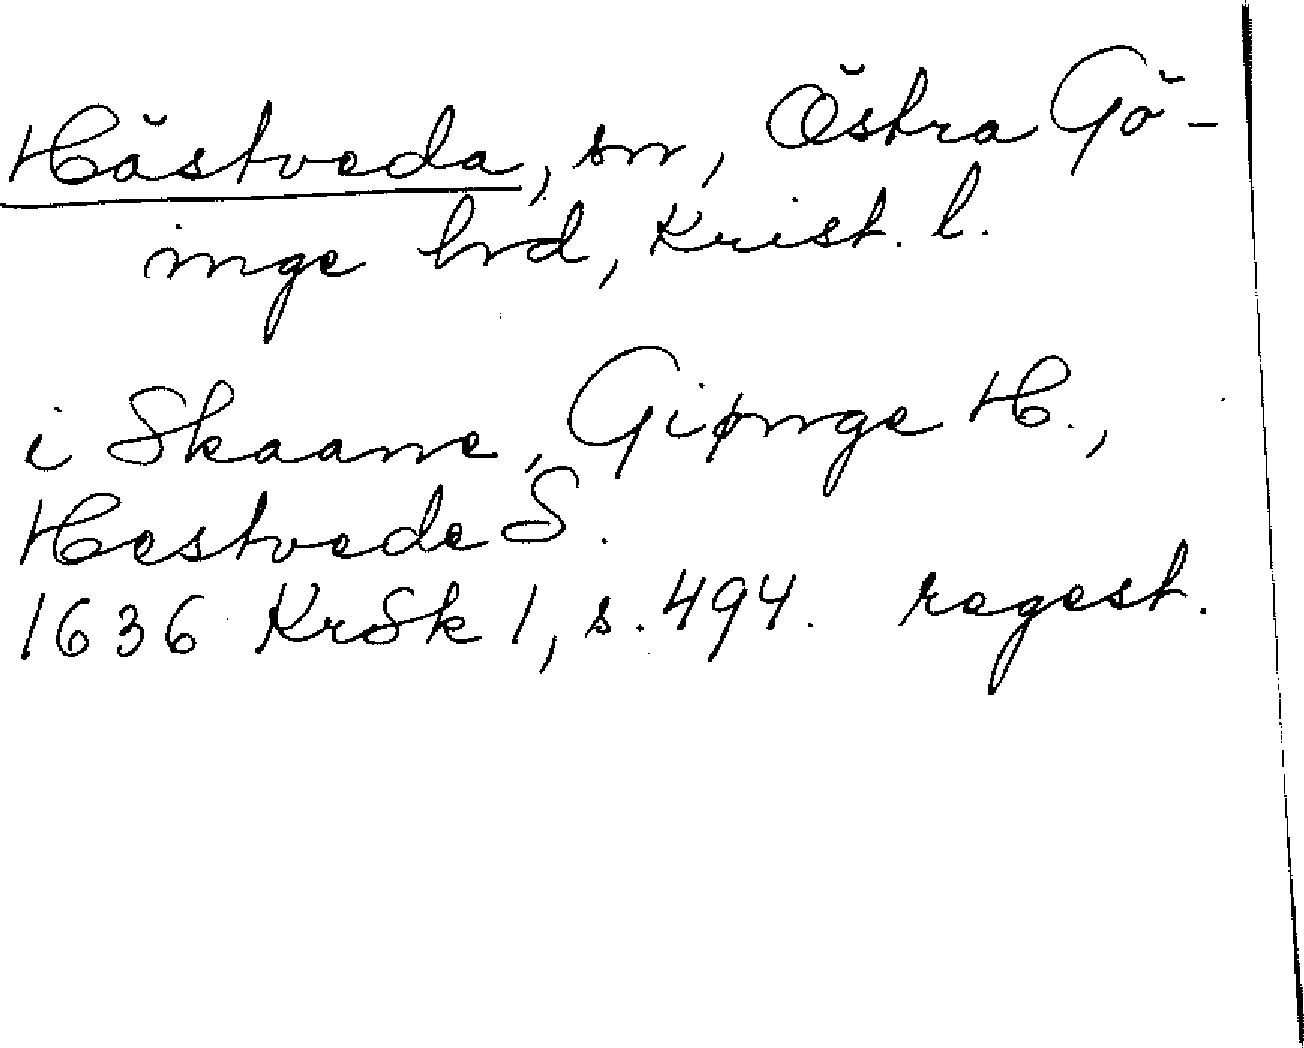 Hästveda, sn, Östra Gö-
inge hrd, Krist. l.
i Skaane, Giønge H.,
Hestvede S.
1636 KrSk 1, s. 494. regest.